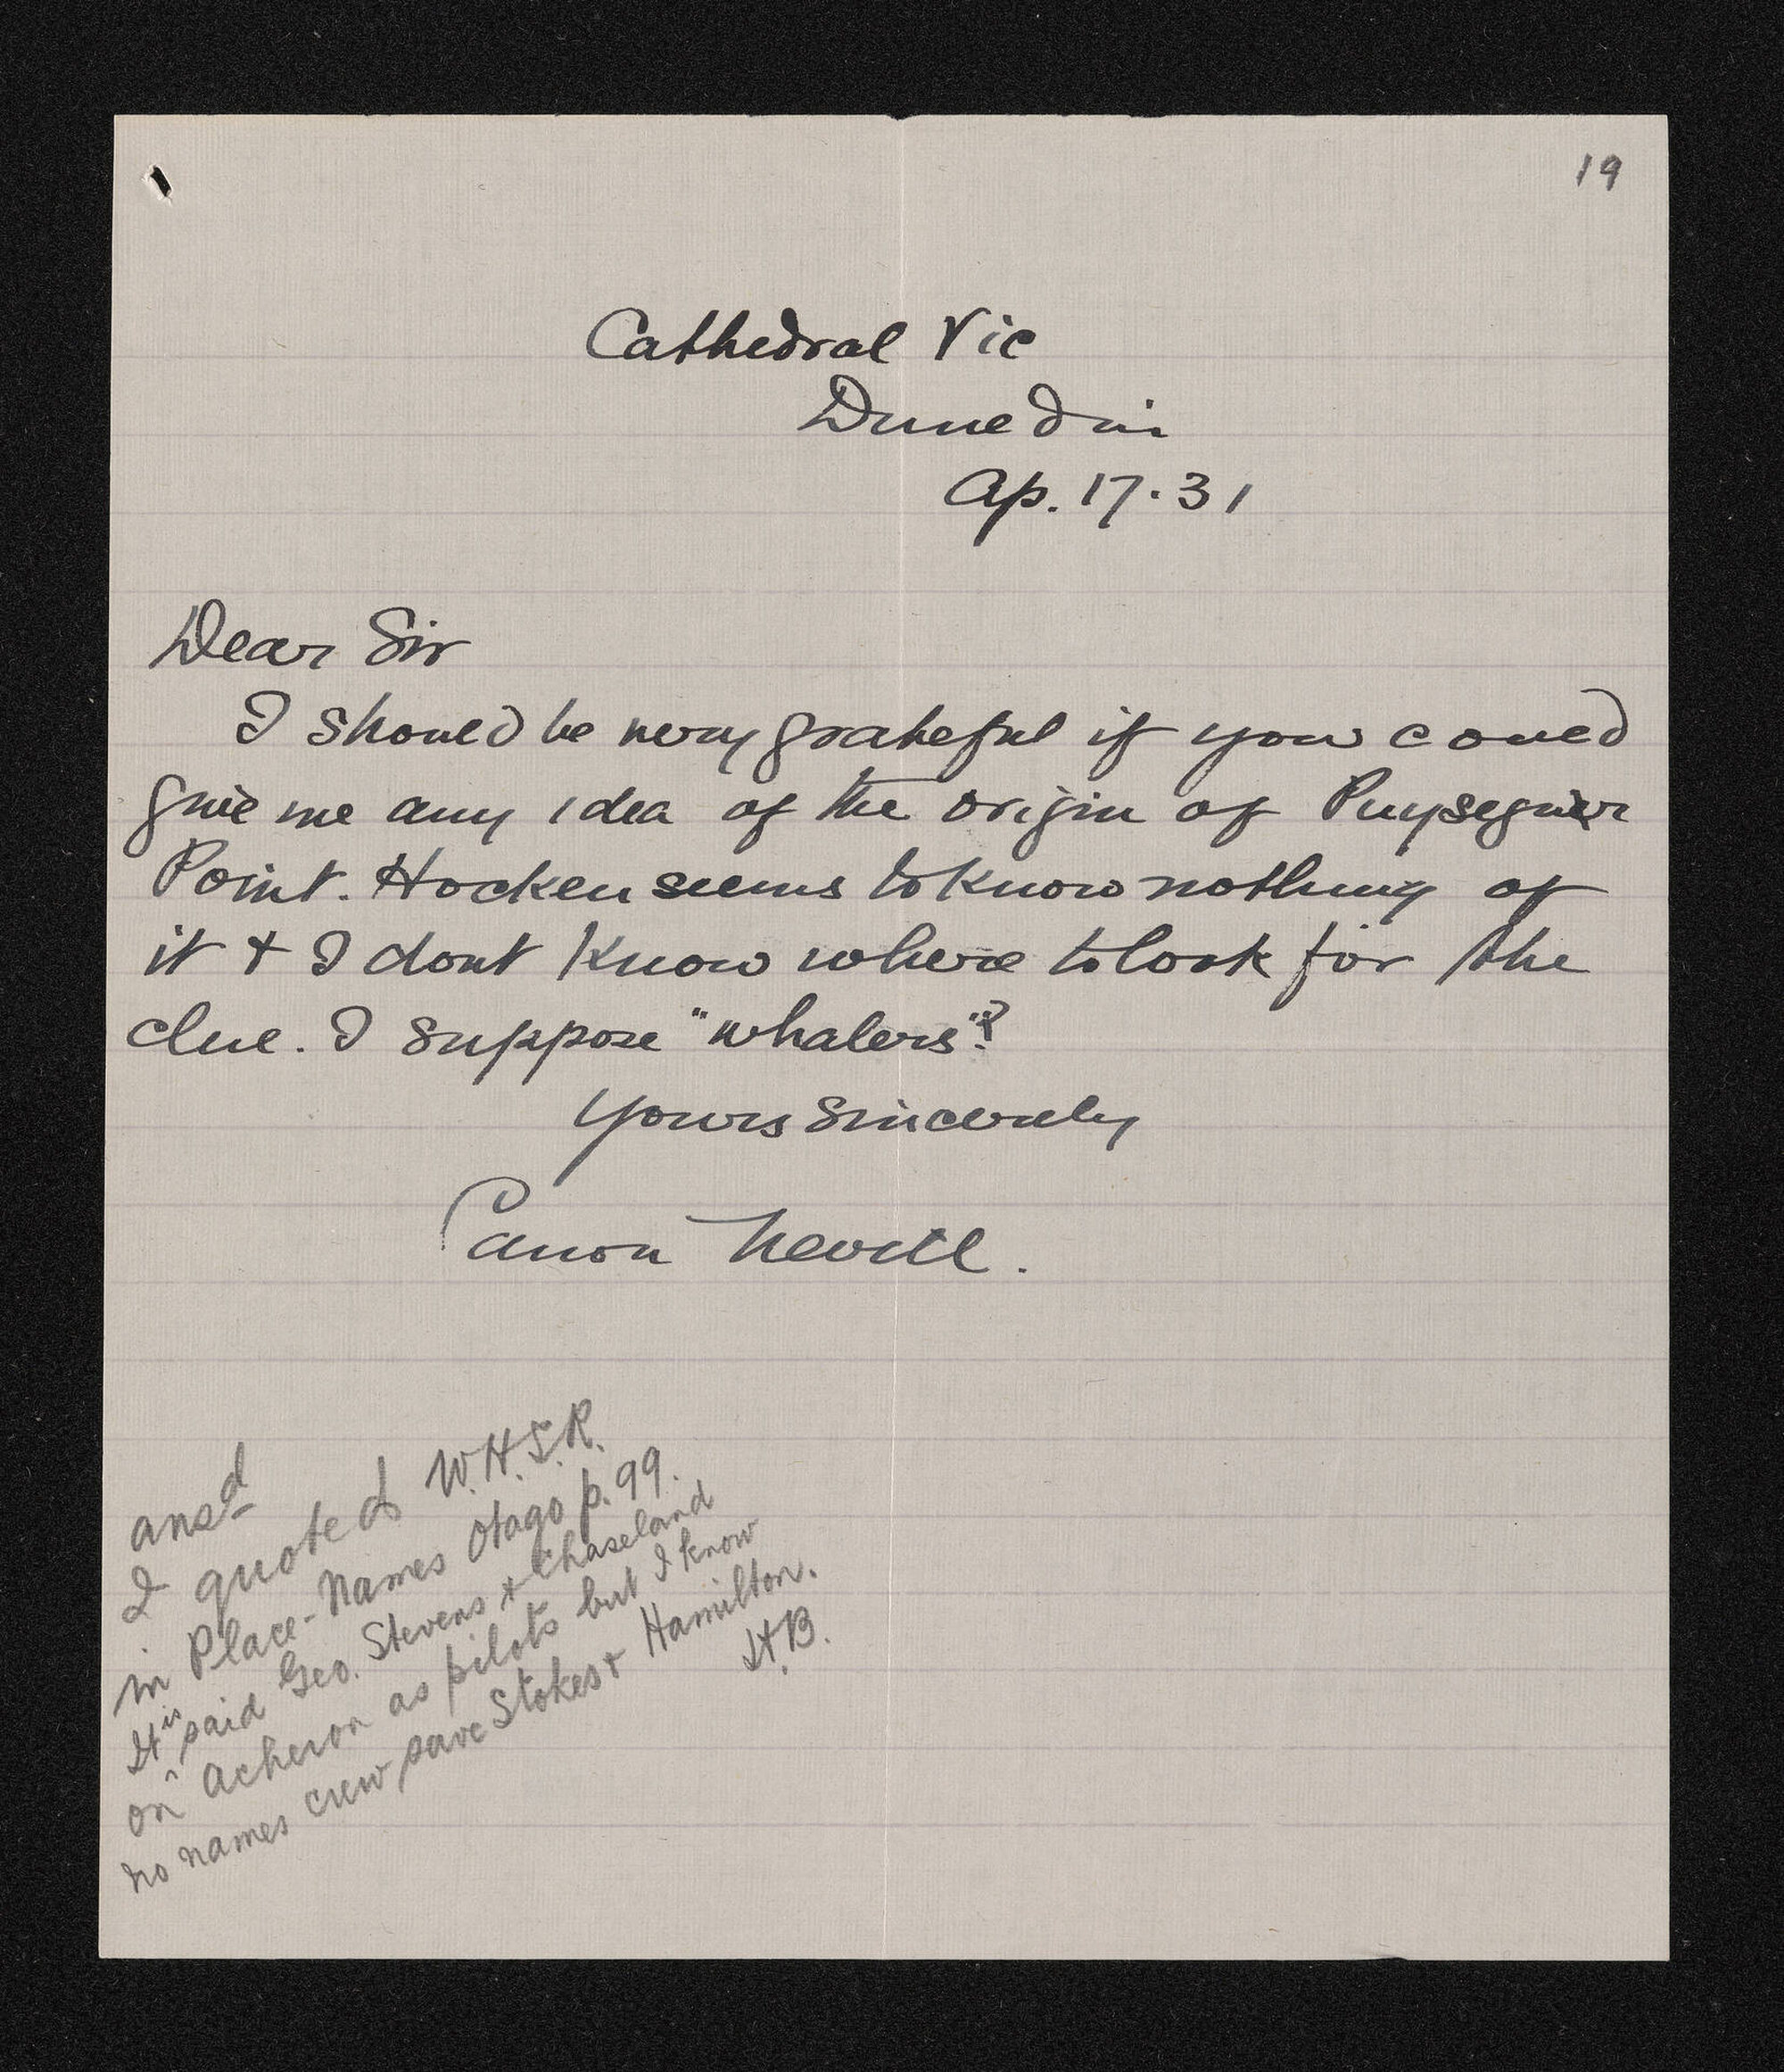 19
Cathedral Vic
Dunedin
Ap. 17. 31
Dear Sir
I should be very grateful if you could
give me any idea of the origin of Puyseguer
Point. Hocken seems to know nothing of
it + I dont know where to look for the
clue. I suppose "whalers"?
Yours sincerely
Canon Nevill.
ansd
I quoted W.H.S.R.
in Place-Names Otago p. 99.
It is said Geo. Stevens + Chaseland
on Acheron as pilots but I know
no names crew save Stokes + Hamilton.
H.B.